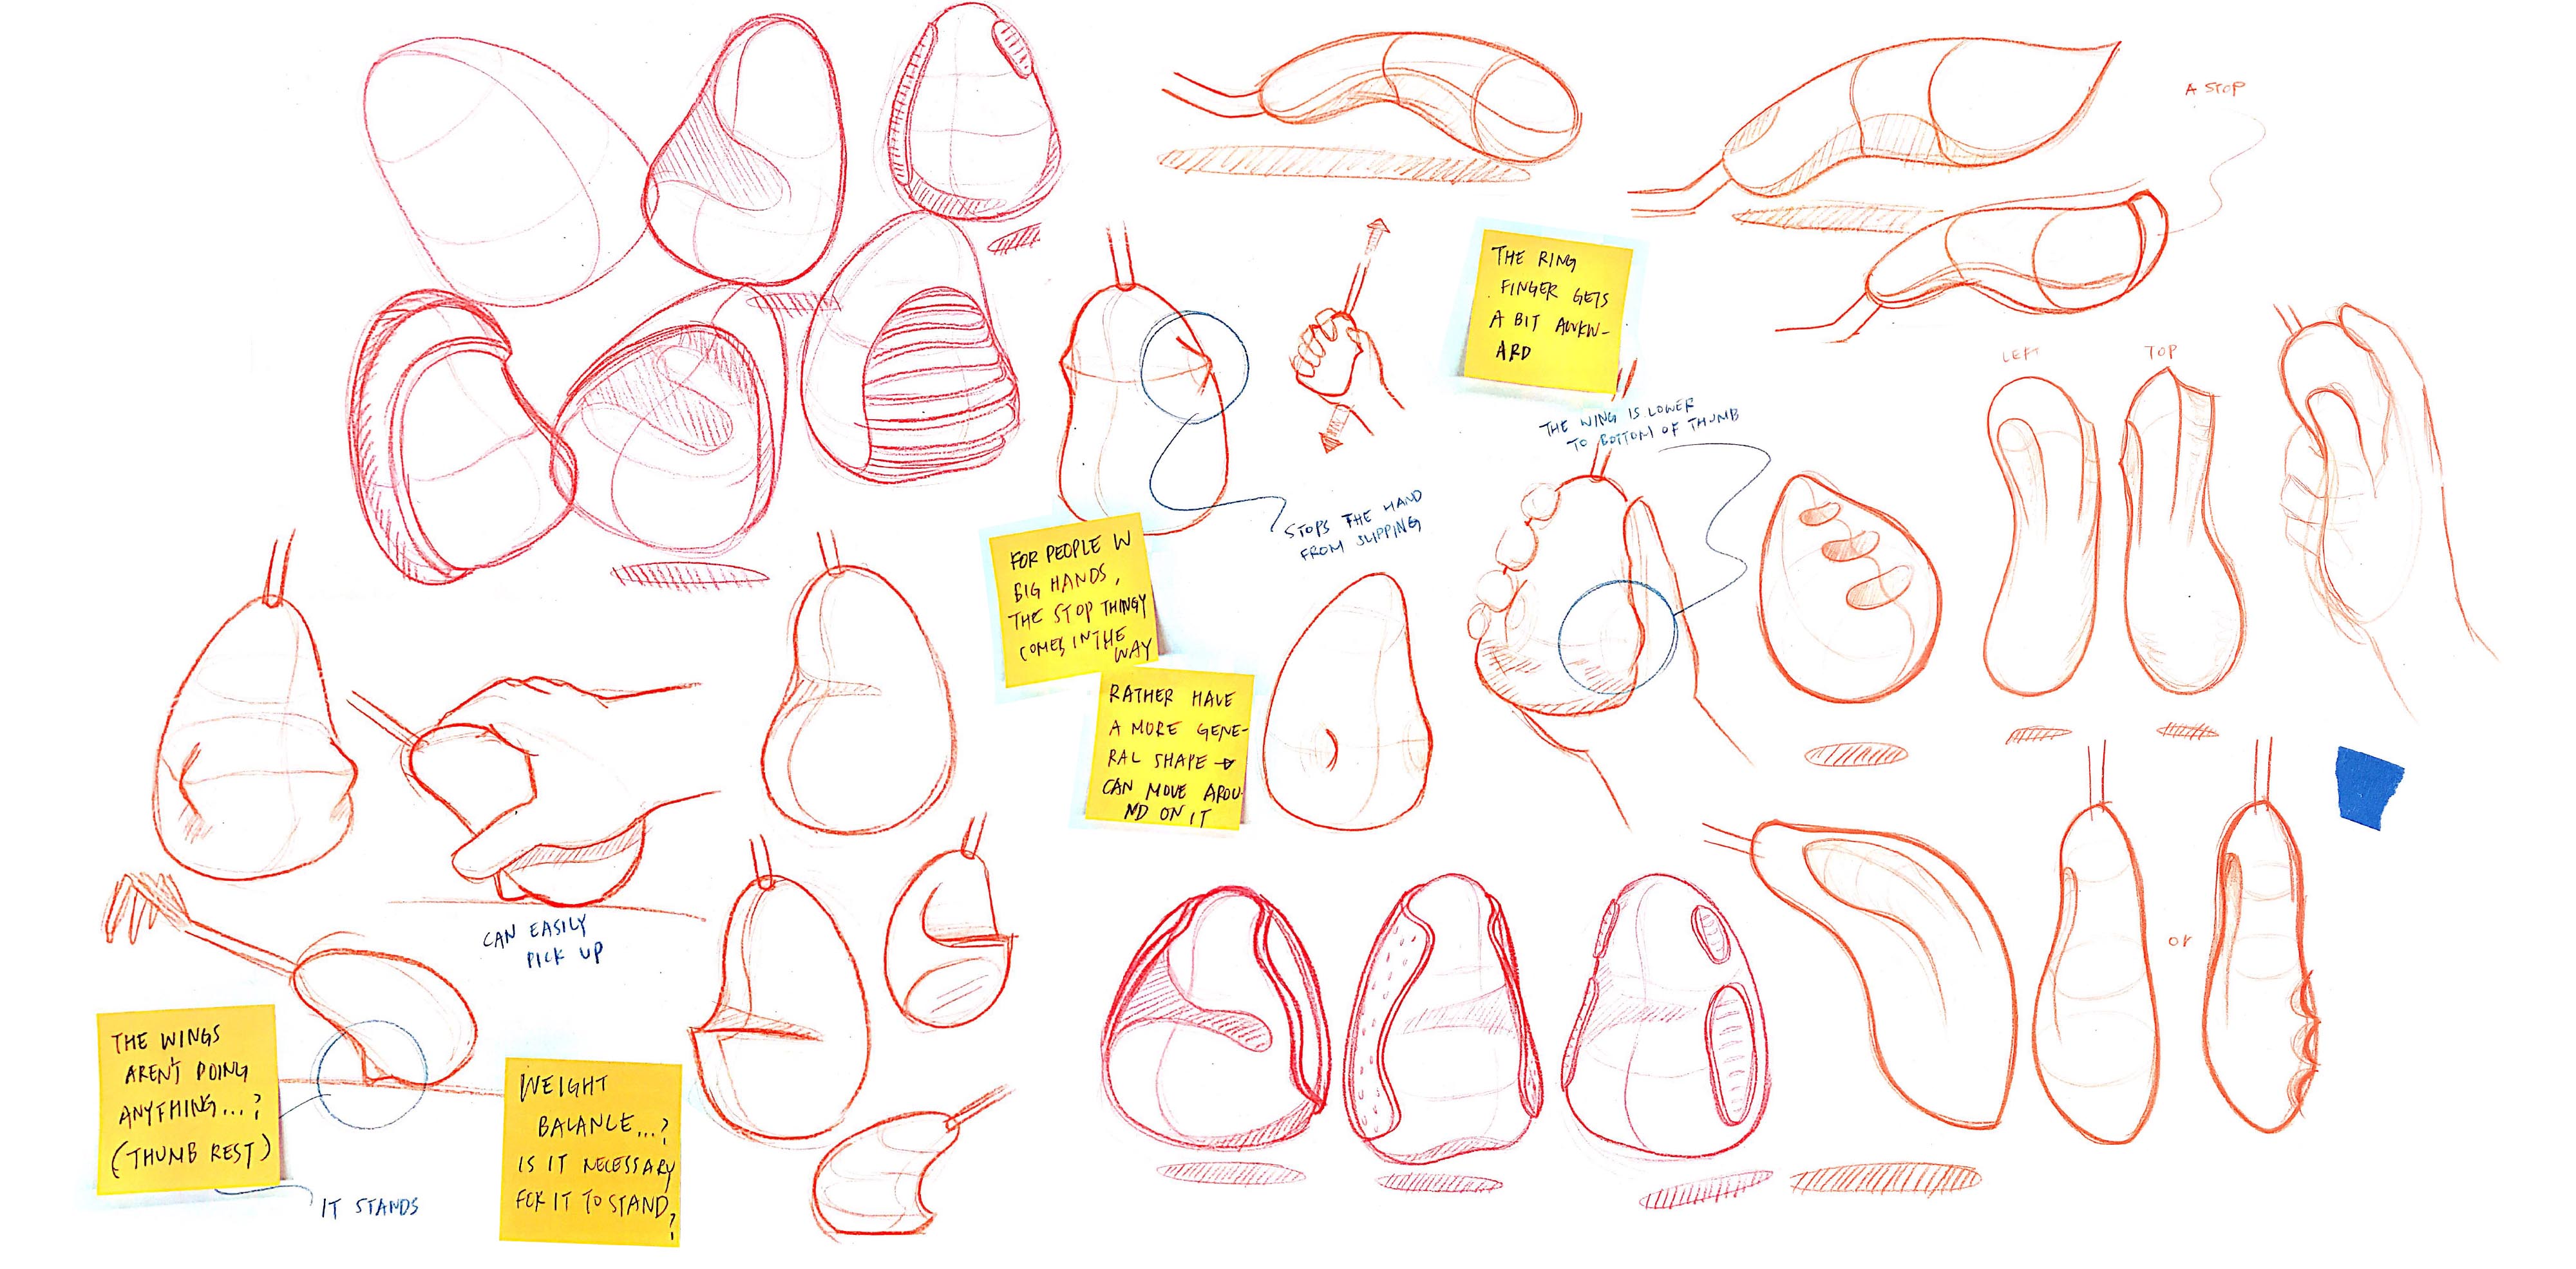 A STOP
THE RING
FINGER GETS
A BIT AWKW-
ARD
LEFT
TOP
THE WING IS LOWER
TO BOTTOM OF THUMB
STOPS THE HAND
FROM SLIPPING
FOR PEOPLE W
BIG HANDS,
THE STOP THINGY
COMES IN THE
WAY
RATHER HAVE
A MORE GENE-
RAL SHAPE →
CAN MOVE AROU-
ND ON IT
CAN EASILY
PICK UP
or
THE WINGS
AREN'T DOING
ANYTHING...?
(THUMB REST)
IT STANDS
WEIGHT
BALANCE...?
IS IT NECESSARY
FOR IT TO STAND
?